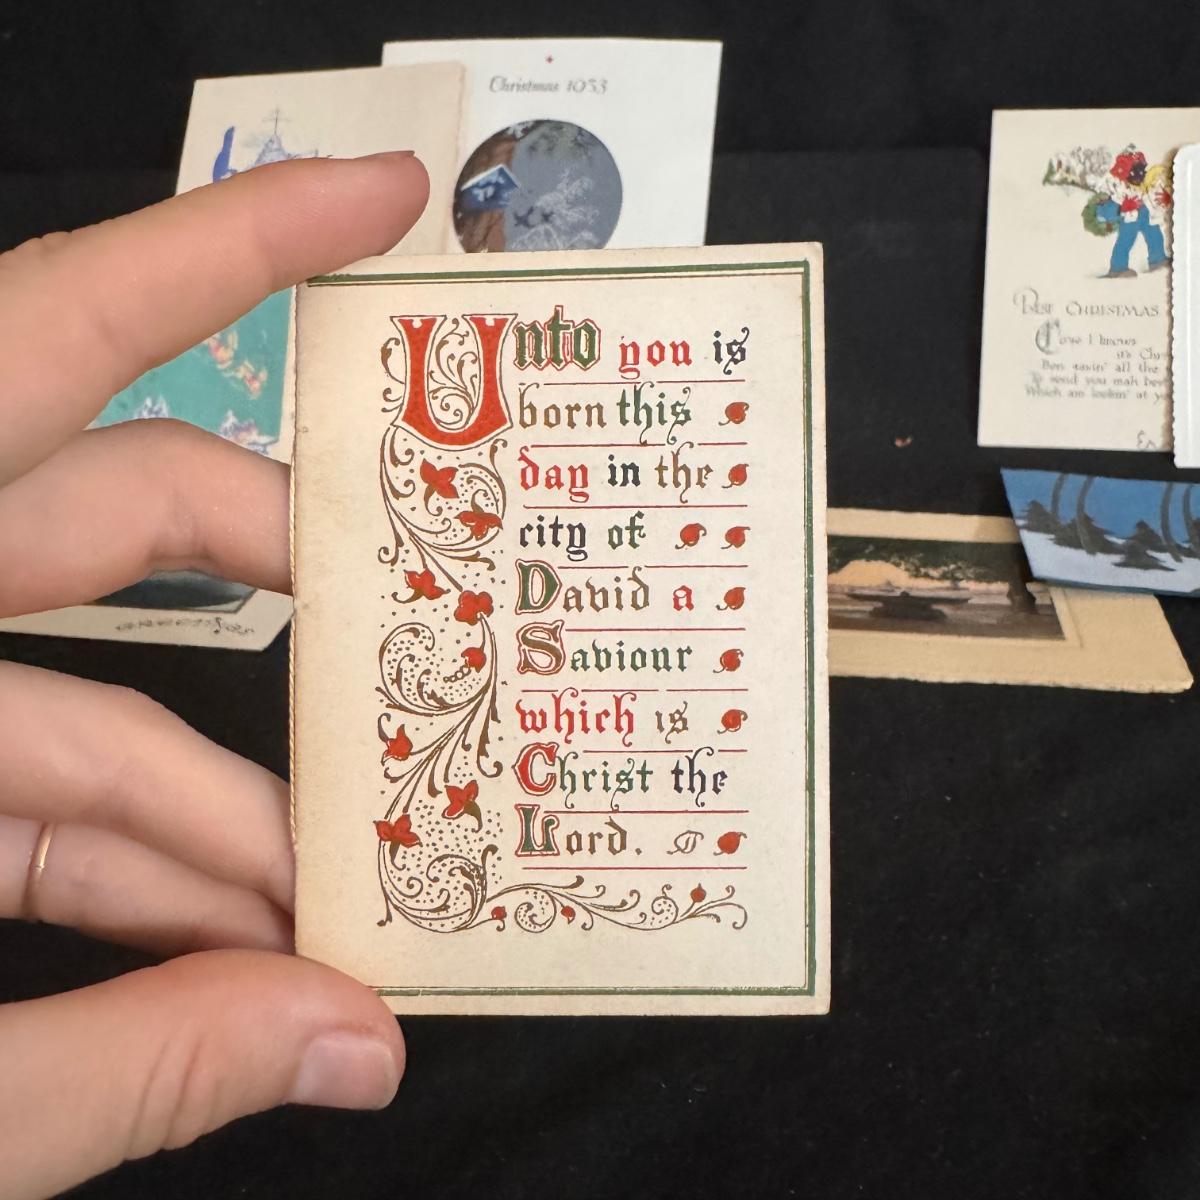 Christmas 1933
Unto you is
born this
day in the
city of
David a
Saviour
which is
Christ the
Lord.
Best Christmas
I knows
it's
all the
To send you mah
Which am lookin' at